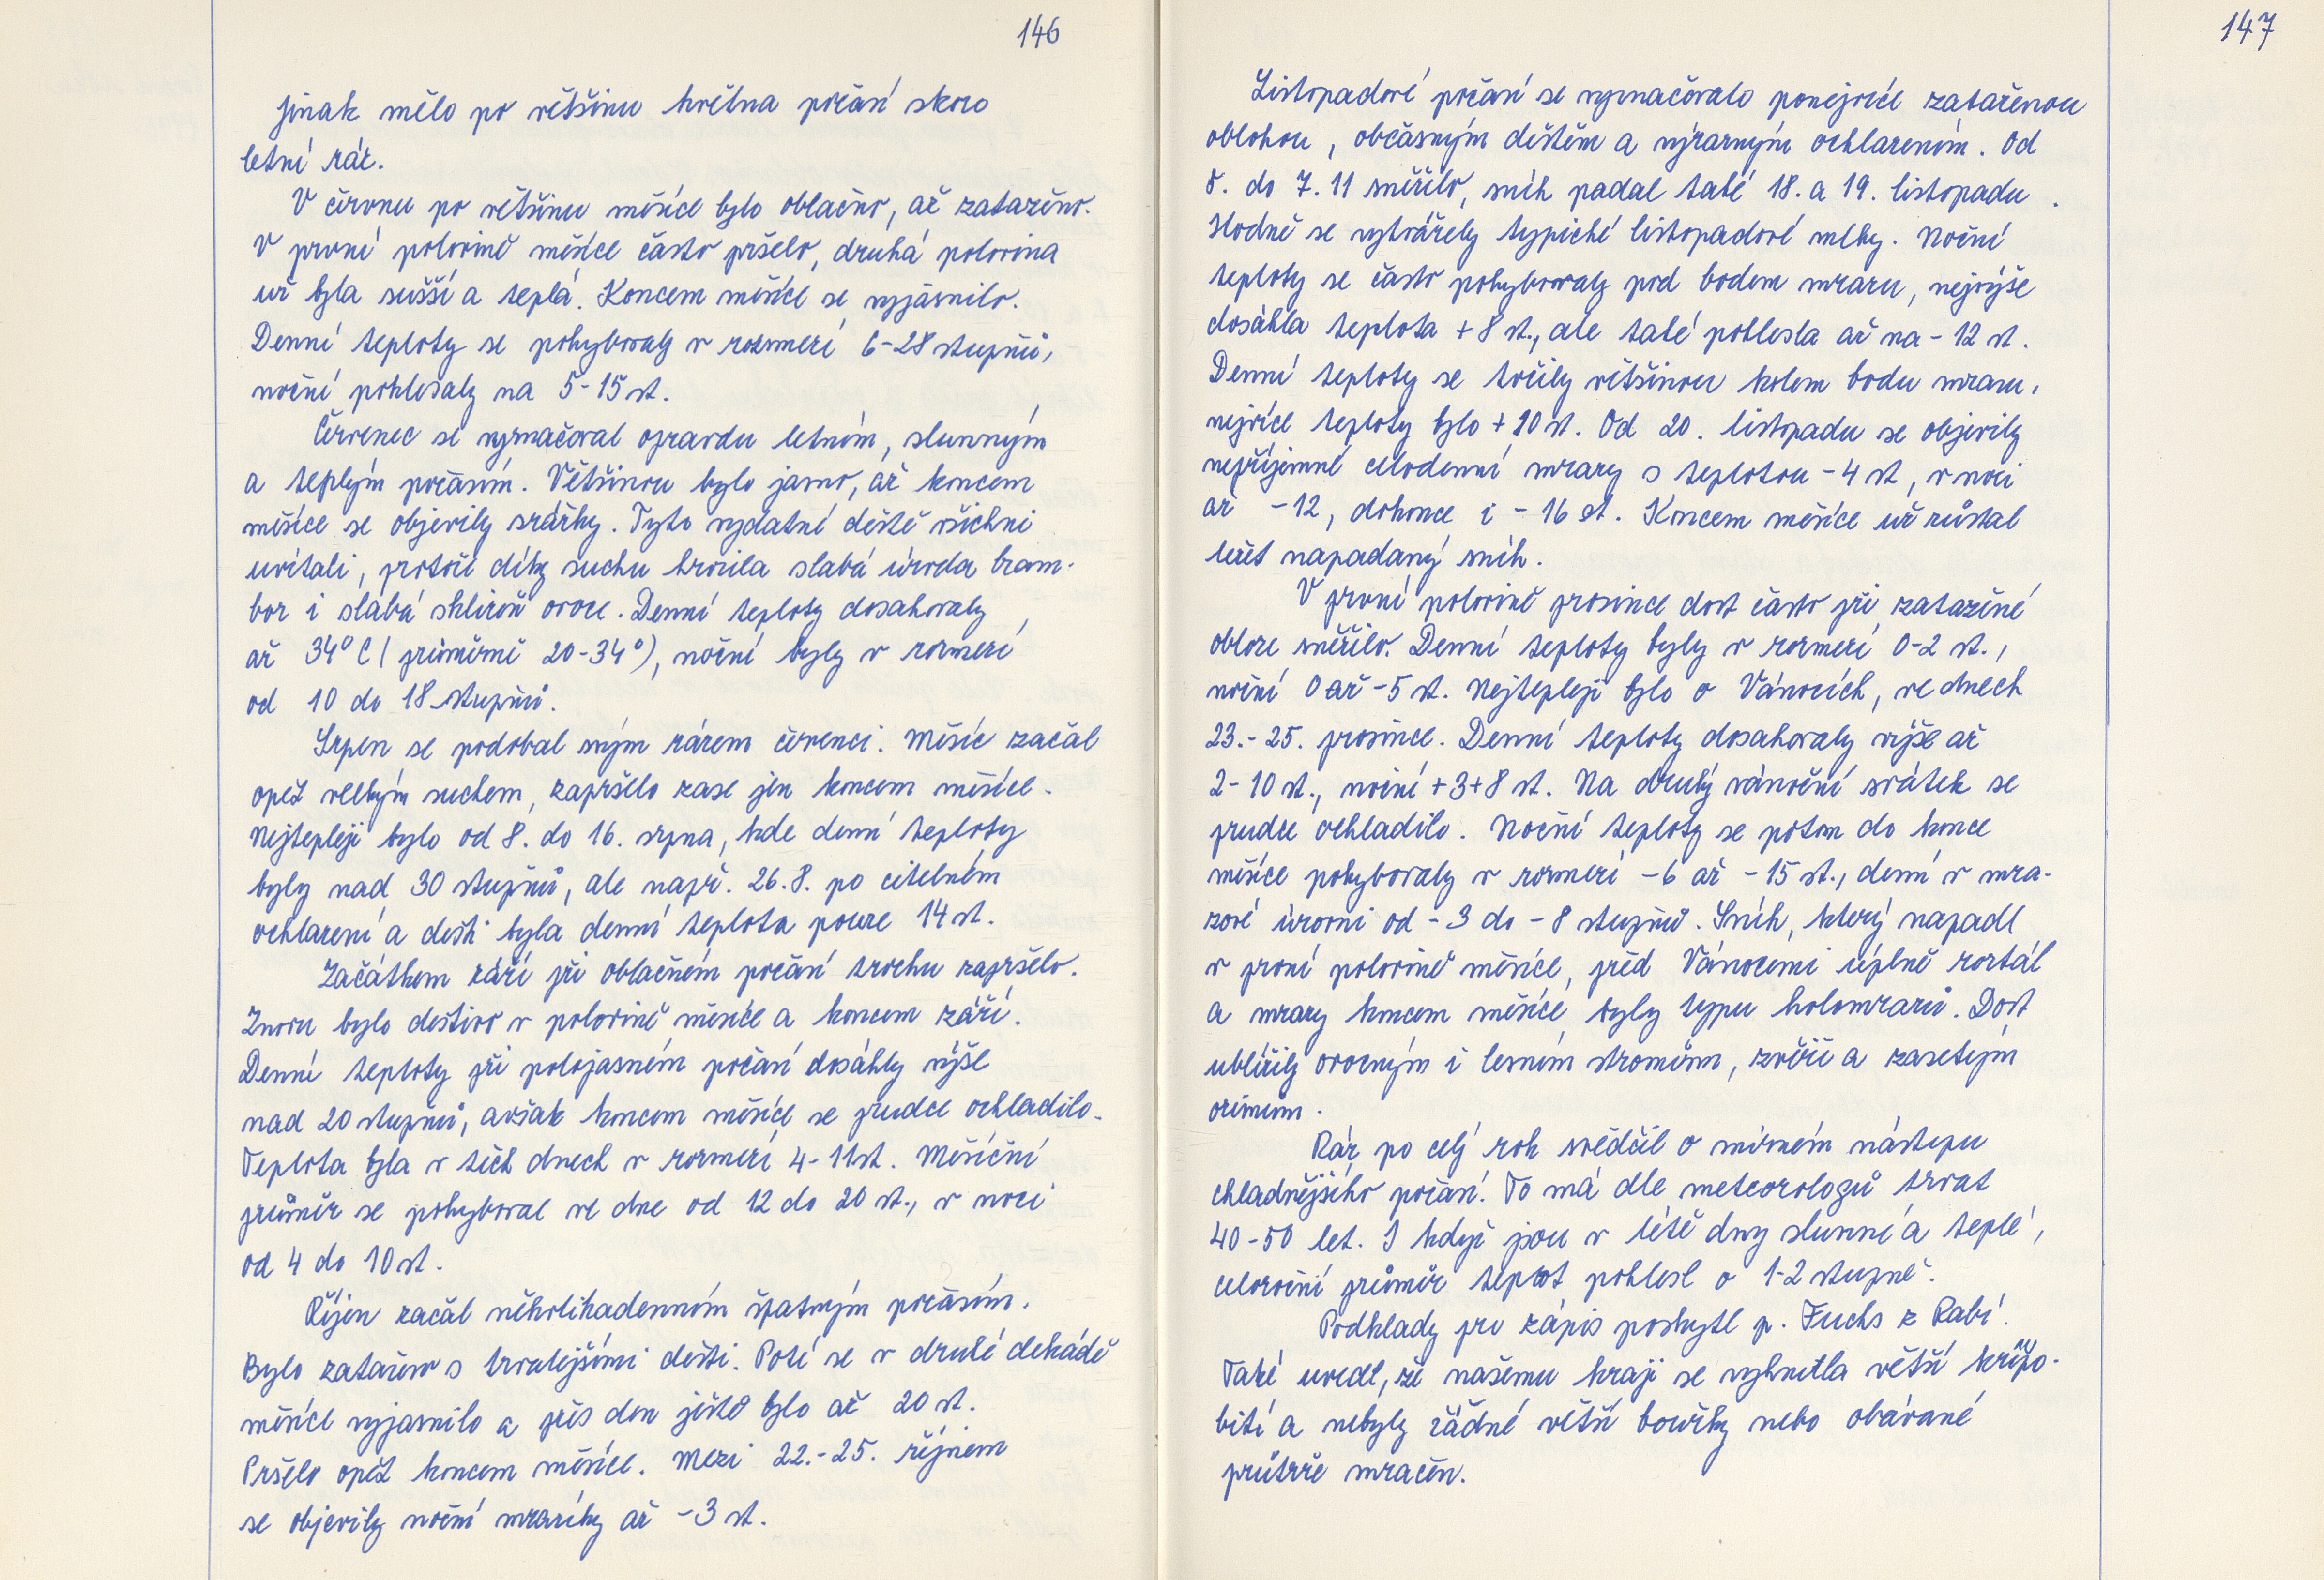 146
Jinak mělo po většinu května počasí skoro
letní ráz.
V červnu po většinu měsíce bylo oblačno, až zataženo.
V první polovině měsíce často pršelo, druhá polovina
už byla sušší a teplá. Koncem měsíce se vyjasnilo.
Denní teploty se pohybovaly v rozmezí 6-28 stupňů,
noční poklesaly na 5-15 st.
Červenec se vyznačoval opravdu letním, slunným
a teplým počasím. Většinou bylo jasno, až koncem
měsíce se objevily srážky. Tyto vydatné deště všichni
uvítali, protože díky suchu hrozila slabá úroda bram-
bor i slabá sklizeň ovoce. Denní teploty dosahovaly
až 34° C ( průměrně 20-34°), noční byly v rozmezí
od 10 do 18 stupňů.
Srpen se podobal svým rázem červenci. Měsíc začal
opět velkým suchem, zapršelo zase jen koncem měsíce.
Nejtepleji bylo od 8. do 16. srpna, kde denní teploty
byly nad 30 stupňů, ale např. 26.8. po citelném
ochlazení a dešti byla denní teplota pouze 14 st.
Začátkem září při oblačném počasí trochu zapršelo.
Znovu bylo deštivo v polovině měsíce a koncem září.
Denní teploty při polojasném počasí dosáhly výše
nad 20 stupňů, avšak koncem měsíce se prudce ochladilo.
Teplota byla v těch dnech v rozmezí 4-11 st. Měsíční
průměr se pohyboval ve dne od 12 do 20 st., v noci
od 4 do 10 st.
Říjen začal několikadenním špatným počasím.
Bylo zataženo s trvalejšími dešti. Poté se v druhé dekádě
měsíce vyjasnilo a přes den ještě bylo až 20 st.
Pršelo opět koncem měsíce. Mezi 22.-25. říjnem
se objevily noční mrazíky až -3 st.
147
Listopadové počasí se vyznačovalo ponejvíce zataženou
oblohou, občasným deštěm a výrazným ochlazením. Od
5. do 7. 11 sněžilo, sníh padal také 18. a 19. listopadu.
Hodně se vytvářely typické listopadové mlhy. Noční
teploty se často pohybovaly pod bodem mrazu, nejvýše
dosáhla teplota + 8 st., ale také poklesla až na - 12 st.
Denní teploty se točily většinou kolem bodu mrazu,
nejvíce teploty bylo + 10 st. Od 20. listopadu se objevily
nepříjemné celodenní mrazy s teplotou - 4 st, v noci
až -12, dokonce i - 16 st. Koncem měsíce už zůstal
ležet napadaný sníh.
V první polovině prosince dost často při zatažené
obloze sněžilo. Denní teploty byly v rozmezí 0-2 st.,
noční 0 až -5 st. Nejtepleji bylo o Vánocích, ve dnech
23.- 25. prosince. Denní teploty dosahovaly výše až
2-10 st., noční +3+8 st. Na druhý vánoční svátek se
prudce ochladilo. Noční teploty se potom do konce
měsíce pohybovaly v rozmezí -6 až -15 st., denní v mra-
zové úrovni od -3 do -8 stupňů. Sníh, který napadl
v první polovině měsíce, před Vánocemi úplně roztál
a mrazy koncem měsíce byly typu holomrazů. Dost
ublížily ovocným i lesním stromům, zvěři a zasetým
ozimům.
Ráz po celý rok svědčil o mírném nástupu
chladnějšího počasí. To má dle meteorologů trvat
40-50 let. I když jsou v létě dny slunné a teplé,
celoroční průměr teplot poklesl o 1-2 stupně.
Podklady pro zápis poskytl p. Fuchs z Rabí.
Také uvedl, že našemu kraji se vyhnutla větší krupo-
bití a nebyly žádné větší bouřky nebo obávané
průtrže mračen.